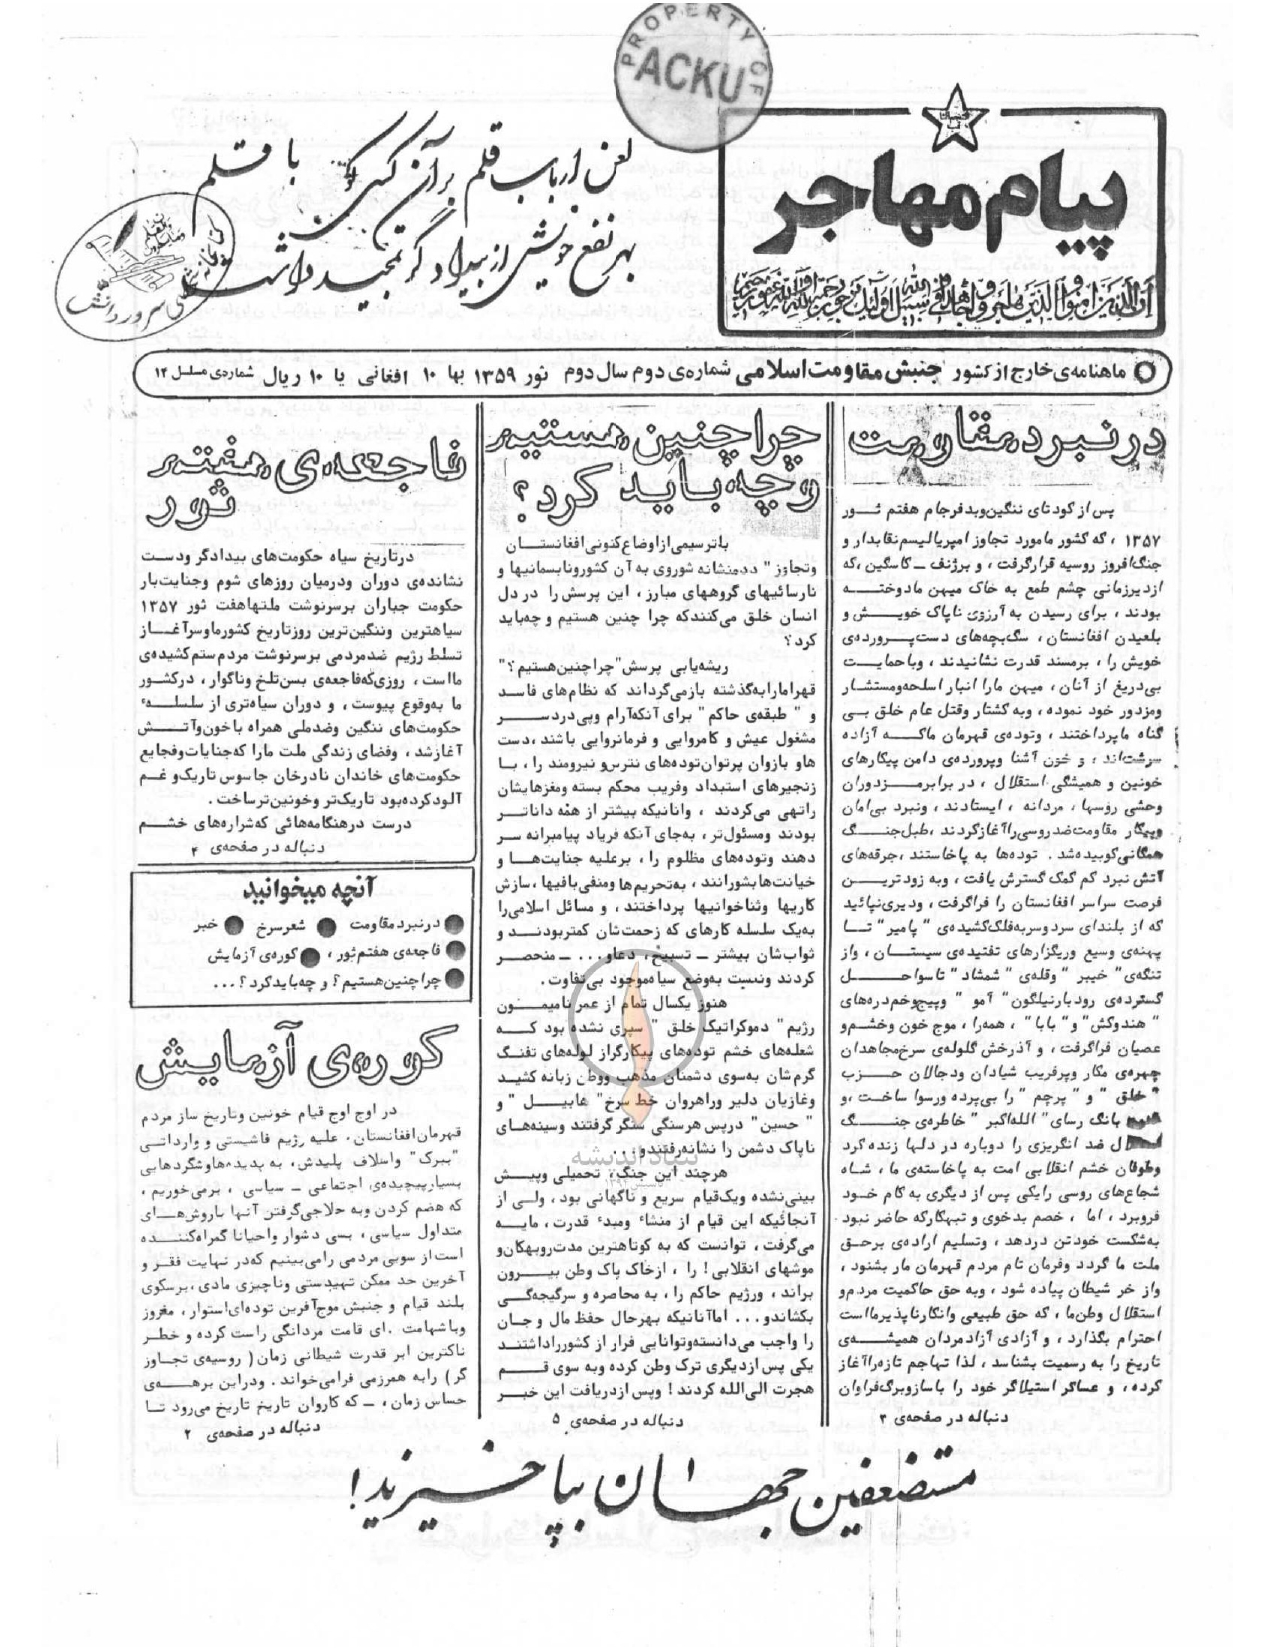 PROPERTY OF
ACKU
پیام مهاجر
ان الذین امنو والذین هاجرو وجاهدو فی سبیل الله اولئک یرجون رحمت الله والله غفور رحیم
لعن ارباب قلم بر آن کسی کو با قلم
بهر نفع خویش از بیدادگر تمجید داشت
ماهنامه‌ی خارج از کشور جنبش مقاومت اسلامی شماره‌ی دوم سال دوم ثور ۱۳۵۹ بها ۱۰ افغانی یا ۱۰ ریال شماره‌ی مسلسل ۱۴
در نبرد مقاومت
پس از کودتای ننگین و بدفرجام هفتم ثور
۱۳۵۷ ، که کشور ما مورد تجاوز امپریالیسم نقابدار و
جنگ‌افروز روسیه قرارگرفت ، و برژنف ــ کاسگین ،که
از دیرزمانی چشم طمع به خاک میهن ما دوختـــه
بودند ، برای رسیدن به آرزوی ناپاک خویـش و
بلعیدن افغانستان ، سگ‌بچه‌های دست‌پـرورده‌ی
خویش را ، برمسند قدرت نشانیدند ، وباحمایت
بی‌دریغ از آنان ، میهن مارا انبار اسلحه‌ومستشار
ومزدور خود نموده ، وبه کشتار وقتل عام خلق بی
گناه ماپرداختند ، وتوده‌ی قهرمان ماکــه آزاده
سرشت‌اند ، و خون آشنا وپرورده‌ی دامن پیکارهای
خونین و همیشگی استقلال ، در برابرمــزدوران
وحشی روسها ، مردانه ، ایستادند ، ونبرد بی‌امان
وپیکار مقاومت ضدروسی را آغازکردند ،طبل‌جنــگ
همگانی کوبیده‌شد . توده‌ها به پاخاستند ،جرقه‌های
آتش نبرد کم کمک گسترش یافت ، وبه زودتریـــن
فرصت سراسر افغانستان را فراگرفت ، ودیری‌نپائید
که از بلندای سرد وسربه‌فلک‌کشیده‌ی "پامیر" تــا
پهنه‌ی وسیع وریگزارهای تفتیده‌ی سیستان ، واز
تنگه‌ی "خیبر" وقله‌ی "شمشاد" تاسواحــــل
گسترده‌ی رودبارنیلگون "آمو" وپیچ‌وخم‌دره‌های
"هندوکش" و"بابا" ، همه‌را ، موج خون وخشم‌و
عصیان فراگرفت ، و آذرخش گلوله‌ی سرخ‌مجاهدان
چهره‌ی مکار وپرفریب شیادان ودجالان حــزب
"خلق" و "پرچم" را بی‌پرده ورسوا ساخت ،و
بانگ رسای "الله‌اکبر" خاطره‌ی جنــــگ
ضد انگریزی را دوباره در دلها زنده کرد
وطوفان خشم انقلابی امت به پاخاسته‌ی ما ، شــاه
شجاع‌های روسی رایکی پس از دیگری به کام خــود
فروبرد ، اما ، خصم بدخوی و تبهکارکه حاضر نبود .
به‌شکست خودتن دردهد ، وتسلیم اراده‌ی برحـق
ملت ما گردد وفرمان تام مردم قهرمان مار بشنود ،
واز خر شیطان پیاده شود ، وبه حق حاکمیت مردم‌و
استقلال وطن‌ما ، که حق طبیعی وانکارناپذیرمااست
احترام بگذارد ، و آزادی آزادمردان همیشــه‌ی
تاریخ را به رسمیت بشناسد ، لذا تهاجم تازه‌راآغاز
کرده ، و عساکر استیلاگر خود را باسازوبرگ‌فراوان
دنباله در صفحه‌ی ۳
چرا چنین هستیم
و چه باید کرد؟
باترسیمی ازاوضاع کنونی افغانستــان
وتجاوز "ددمنشانه شوروی به آن کشورونابسمانیها و
نارسائیهای گروههای مبارز ، این پرسش را در دل
انسان خلق می‌کنندکه چرا چنین هستیم و چه‌باید
کرد؟
ریشه‌یابی پرسش "چراچنین‌هستیم؟"
قهرامارابه‌گذشته بازمی‌گرداند که نظام‌های فاسد
و "طبقه‌ی حاکم" برای آنکه‌آرام وبی‌دردســـر
مشغول عیش و کامروایی و فرمانروایی باشند ،دست
هاو بازوان پرتوان‌توده‌های نترس‌و نیرومند را ، بــا
زنجیرهای استبداد وفریب محکم بسته ومغزهایشان
راتهی می‌کردند ، وانانیکه بیشتر از همه داناتــر
بودند ومسئول‌تر ، به‌جای آنکه فریاد پیامبرانه سر
دهند وتوده‌های مظلوم را ، برعلیه جنایت‌هــا و
خیانت‌ها بشورانند ، به‌تحریم‌ها ومنفی‌بافیها ،سازش
کاریها وثناخوانیها پرداختند ، و مسائل اسلامی‌را
به‌یک سلسله کارهای که زحمت‌شان کمتربودنــد و
ثواب‌شان بیشتر ــ تسبیح ، دعاو . . . ــ منحصر
کردند ونسبت به‌وضع سیاه‌موجود بی‌تفاوت .
هنوز یکسال تمام از عمر نامیمــون
رژیم "دموکراتیک خلق" سپری نشده بود کــه
شعله‌های خشم توده‌های پیکارگراز لوله‌های تفنگ
گرم‌شان به‌سوی دشمنان مذهب ووطن زبانه کشید
وغازیان دلیر وراهروان خط سرخ "هابیــل" و
"حسین" درپس هرسنگی سنگر گرفتند وسینه‌های
ناپاک دشمن را نشانه‌رفتندو . . .
هرچند این جنگ ، تحمیلی وپیــش
بینی‌نشده ویک‌قیام سریع و ناگهانی بود ، ولی از
آنجائیکه این قیام از منشاء ومبدء قدرت ، مایــه
می‌گرفت ، توانست که به کوتاهترین مدت‌روبهکان‌و
موشهای انقلابی ! را ، ازخاک پاک وطن بیــرون
براند ، ورژیم حاکم را ، به محاصره و سرگیجه‌گــی
بکشاندو . . . اماآنانیکه بهرحال حفظ مال و جــان
را واجب می‌دانستندوتوانایی فرار از کشورراداشتند
یکی پس ازدیگری ترک وطن کرده وبه سوی قـــم
هجرت الی‌الله کردند ! وپس ازدریافت این خبــر
دنباله در صفحه‌ی ۵
فاجعه‌ی هفتم
ثور
درتاریخ سیاه حکومت‌های بیدادگر ودست
نشانده‌ی دوران ودرمیان روزهای شوم وجنایت‌بار
حکومت جباران برسرنوشت ملتهاهفت ثور ۱۳۵۷
سیاهترین وننگین‌ترین روزتاریخ کشورماوسرآغــاز
تسلط رژیم ضدمردمی برسرنوشت مردم‌ستم‌کشیده‌ی
مااست ، روزی‌که‌فاجعه‌ی بس‌تلخ وناگوار ، درکشور
ما به‌وقوع پیوست ، و دوران سیاه‌تری از سلسلــهء
حکومت‌های ننگین وضدملی همراه باخون‌وآتــش
آغازشد ، وفضای زندگی ملت مارا که‌جنایات‌وفجایع
حکومت‌های خاندان نادرخان جاسوس تاریک‌و غــم
آلودکرده‌بود تاریک‌تر وخونین‌ترساخت .
درست درهنگامه‌هائی که‌شراره‌های خشــم
دنباله در صفحه‌ی ۴
آنچه میخوانید
در نبرد مقاومت شعر سرخ خبر
فاجعه‌ی هفتم ثور ، کوره‌ی آزمایش
چرا چنین هستیم؟ و چه باید کرد؟ . . .
کوره‌ی آزمایش
در اوج اوج قیام خونین وتاریخ ساز مردم
قهرمان افغانستان . علیه رژیم فاشیستی و وارداتــی
"ببرک" واسلاف پلیدش ، به پدیده‌هاوشگردهایی
بسیارپیچیده‌ی اجتماعی ــ سیاسی ، برمی‌خوریم ،
که هضم کردن وبه حلاجی‌گرفتن آنها باروش‌هــای
متداول سیاسی ، بسی دشوار واحیانا گمراه‌کننــده
است‌از سویی مردمی رامی‌بینیم که‌در نهایت فقــر و
آخرین حد ممکن تهیدستی وناچیزی مادی ، برسکوی
بلند قیام و جنبش موج‌آفرین توده‌ای‌استوار ، مغرور
وباشهامت .ای قامت مردانگی راست کرده و خطــر
ناکترین ابر قدرت شیطانی زمان ( روسیه‌ی تجاوز
گر ) رابه همرزمی فرامی‌خواند . ودراین برهــه‌ی
حساس زمان ، ــ که کاروان تاریخ تاریخ می‌رود تــا
دنباله در صفحه‌ی ۲
بنیاد اندیشه
مستضعفین جهان بپا خیزید!